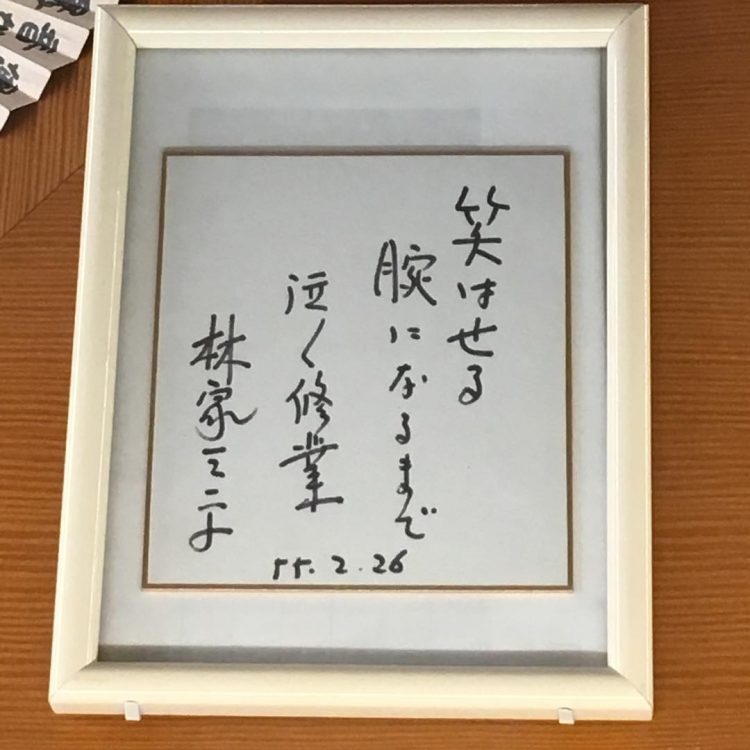 笑はせる
腕になるまで
泣く修業
林家
55.2.26